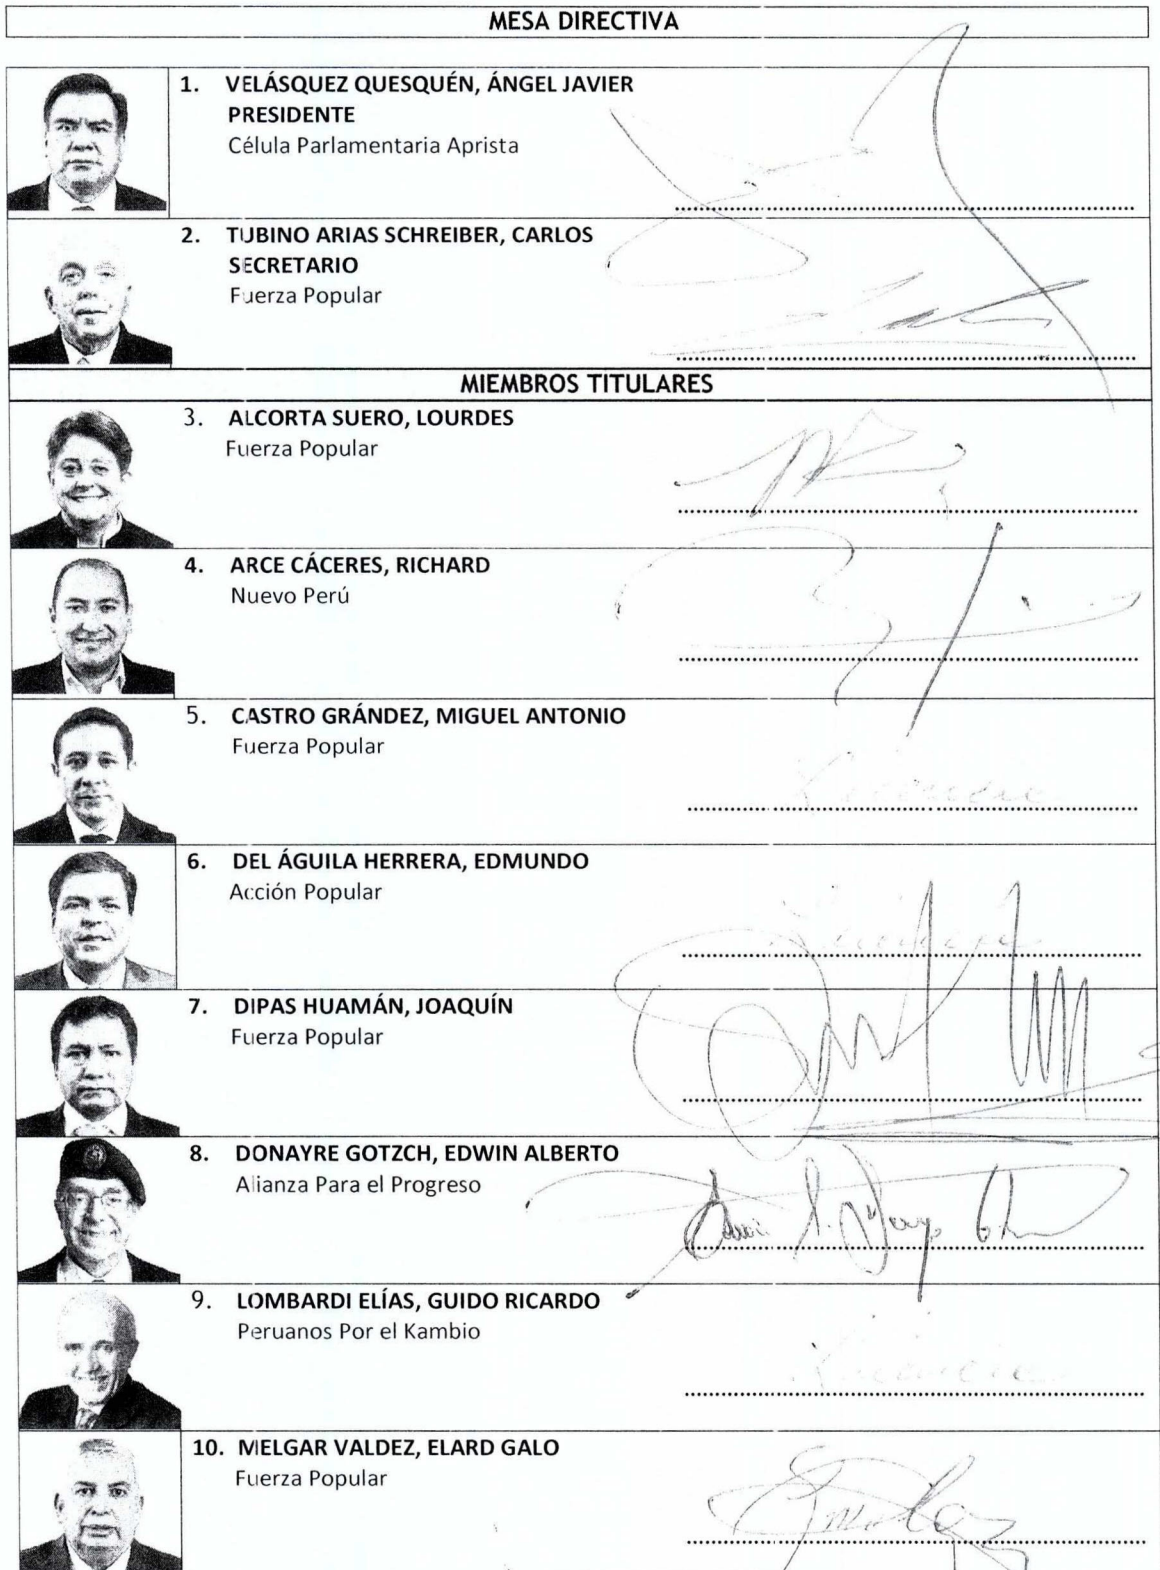 MESA DIRECTIVA
1. VELÁSQUEZ QUESQUÉN, ÁNGEL JAVIER
PRESIDENTE
Célula Parlamentaria Aprista
2. TUBINO ARIAS SCHREIBER, CARLOS
SECRETARIO
Fuerza Popular
MIEMBROS TITULARES
3. ALCORTA SUERO, LOURDES
Fuerza Popular
4. ARCE CÁCERES, RICHARD
Nuevo Perú
5. CASTRO GRÁNDEZ, MIGUEL ANTONIO
Fuerza Popular
6. DEL ÁGUILA HERRERA, EDMUNDO
Acción Popular
7. DIPAS HUAMÁN, JOAQUÍN
Fuerza Popular
8. DONAYRE GOTZCH, EDWIN ALBERTO
Alianza Para el Progreso
9. LOMBARDI ELÍAS, GUIDO RICARDO
Peruanos Por el Kambio
10. MELGAR VALDEZ, ELARD GALO
Fuerza Popular